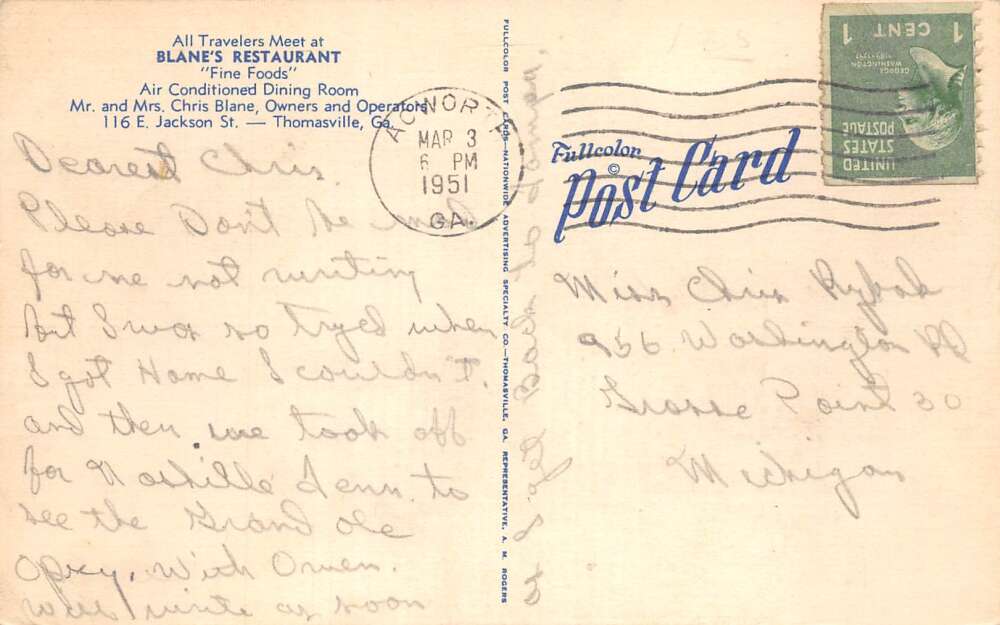 All Travelers Meet at
BLANE'S RESTAURANT
"Fine Foods"
Air Conditioned Dining Room
Mr. and Mrs. Chris Blane, Owners and Operators
116 E. Jackson St. — Thomasville, Ga.
Dearest Chris.
Please Don't be mad
for me not writing
but I was so Tryed when
I got Home I couldn't.
and then we took off
for Nashille Tenn. to
see the Grand ole
Opry. With Owen.
Will write as soon
as I get Back at
FULLCOLOR POST CARDS—NATIONWIDE ADVERTISING SPECIALTY CO.—THOMASVILLE, GA. REPRESENTATIVE, A. M. ROGERS
ACWORTH
MAR 3
6 PM
1951
GA.
Fullcolor
©
Post Card
1 CENT 1
GEORGE
WASHINGTON
1789-1797
UNITED
STATES
POSTAGE
Miss Chris Rybak
956 Washington Rd
Grosse Point 30
Michigan